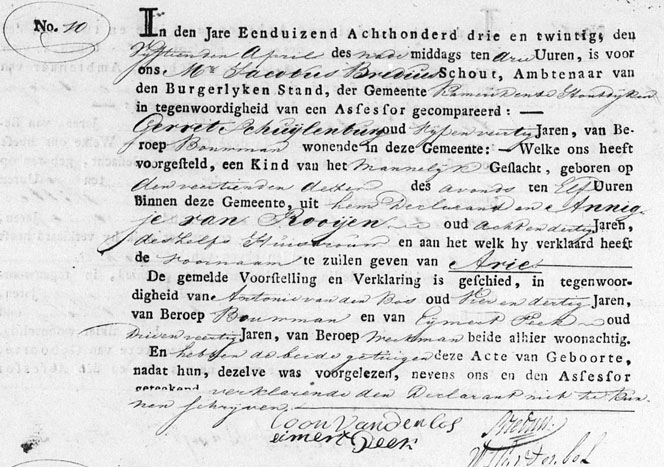 No. 10
In den Jare Eenduizend Achthonderd drie en twintig, den
Vyftienden April des na middags ten drie Uuren, is voor
ons Mr. Jacobus Bredius Schout, Ambtenaar van
den Burgerlyken Stand, der Gemeente Kamerik en de Houtdyken
in tegenwoordigheid van een Assessor gecompareerd: —
Gerret Schuÿlenburg oud Vyf en veertig Jaren, van Be-
roep Bouwman wonende in deze Gemeente: — Welke ons heeft
voorgesteld, een Kind van het Mannelyk Geslacht, geboren op
den veertienden dezer des avonds ten Elf Uuren
Binnen deze Gemeente, uit hem Declarant en Annig-
je van Rooijen oud Acht en dertig Jaren,
deszelfs Huisvrouw en aan het welk hy verklaard heeft
de voornaam te zuilen geven van Arie
De gemelde Voorstelling en Verklaring is geschied, in tegenwoor-
digheid van Antonie van den Bos oud Vier en dertig Jaren,
van Beroep Bouwman en van Eymert Peek oud
Drie en veertig Jaren, van Beroep Werkman beide alhier woonachtig.
En hebben de beide getuigen deze Acte van Geboorte,
nadat hun, dezelve was voorgelezen, nevens ons en den Assessor
geteekend verklarende den Declarant niet te kun-
nen schryven.
toon Van den bos
eimert Peek
Bredius